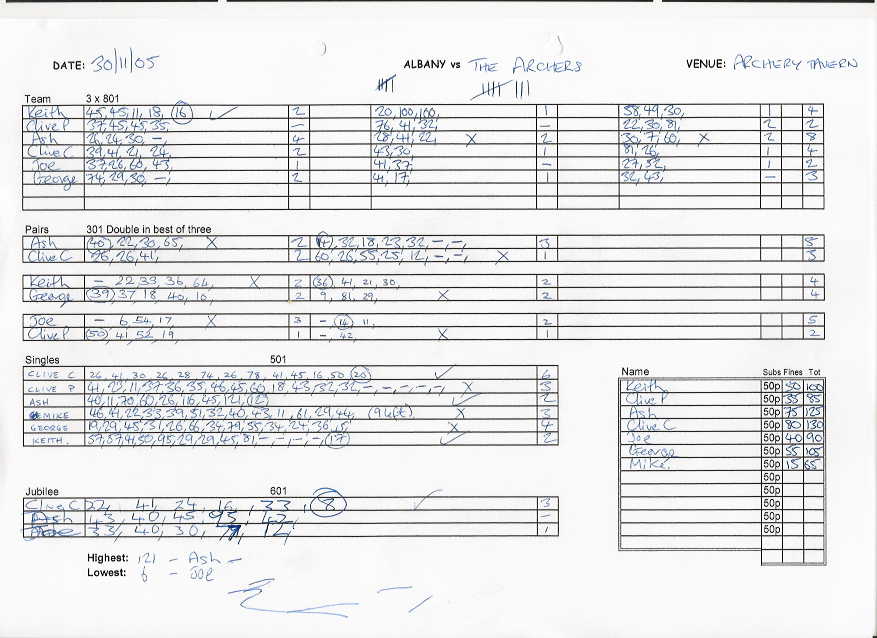 DATE: 30/11/05 ALBANY vs THE ARCHERS VENUE: ARCHERY TAVERN
Team 3 x 801
Keith 45, 45, 11, 18, 16 ✓ 2 20, 100, 100, 1 58, 49, 30, 1 4
Clive P 37, 45, 45, 35, – 76, 41, 32, – 22, 30, 81, 2 2
Ash 26, 24, 30, –, 4 28, 41, 22, X 2 30, 7, 60, X 2 8
Clive C 39, 41, 21, 24, 2 43, 30, 1 81, 26, 1 4
Joe 37, 26, 60, 43, 1 41, 37, – 27, 32, 1 2
George 74, 29, 30, –, 2 41, 17, 1 32, 43, – 3
Pairs 301 Double in best of three
Ash (40), 22, 30, 65, X 2 32, 18, 23, 32, –, –, 3 5
Clive C 26, 26, 41, 2 60, 26, 55, 25, 12, –, –, X 1 3
Keith – 22, 39, 36, 64, X 2 (36), 41, 21, 30, 2 4
George (39) 37, 18, 40, 10, 2 9, 81, 29, X 2 4
Joe – 6, 54, 17, X 3 –, (16), 11, 2 5
Clive P (50), 41, 52, 19, 1 –, 42, X 1 2
Singles 501
CLIVE C 26, 41, 30, 26, 28, 74, 26, 78, 41, 45, 16, 50, (20) ✓ 6
CLIVE P 41, 23, 11, 37, 36, 35, 46, 45, 60, 18, 43, 32, 32, –, –, –, –, –, X 3
ASH 40, 11, 70, 60, 26, 116, 45, 121, (12) ✓ 2
MIKE 46, 41, 22, 33, 39, 51, 32, 40, 43, 11, 61, 29, 44, (9 left) X 3
GEORGE 19, 29, 45, 31, 26, 66, 34, 79, 55, 34, 24, 36, 5, X 4
KEITH. 57, 57, 41, 50, 95, 29, 29, 45, 81, –, –, –, –, (17) ✓ 2
Name Subs Fines Tot
Keith 50p 50 100
Clive P 50p 35 85
Ash 50p 75 125
Clive C 50p 80 130
Joe 50p 40 90
George 50p 55 105
Mike. 50p 15 65
50p
50p
50p
50p
50p
Jubilee 601
Clive C 22, 41, 24, 16, 33, (8) ✓ 3
Ash 43, 40, 45, 95, 42, –
33, 40, 30, 12, 1
Highest: 121 – Ash –
Lowest: 6 – Joe